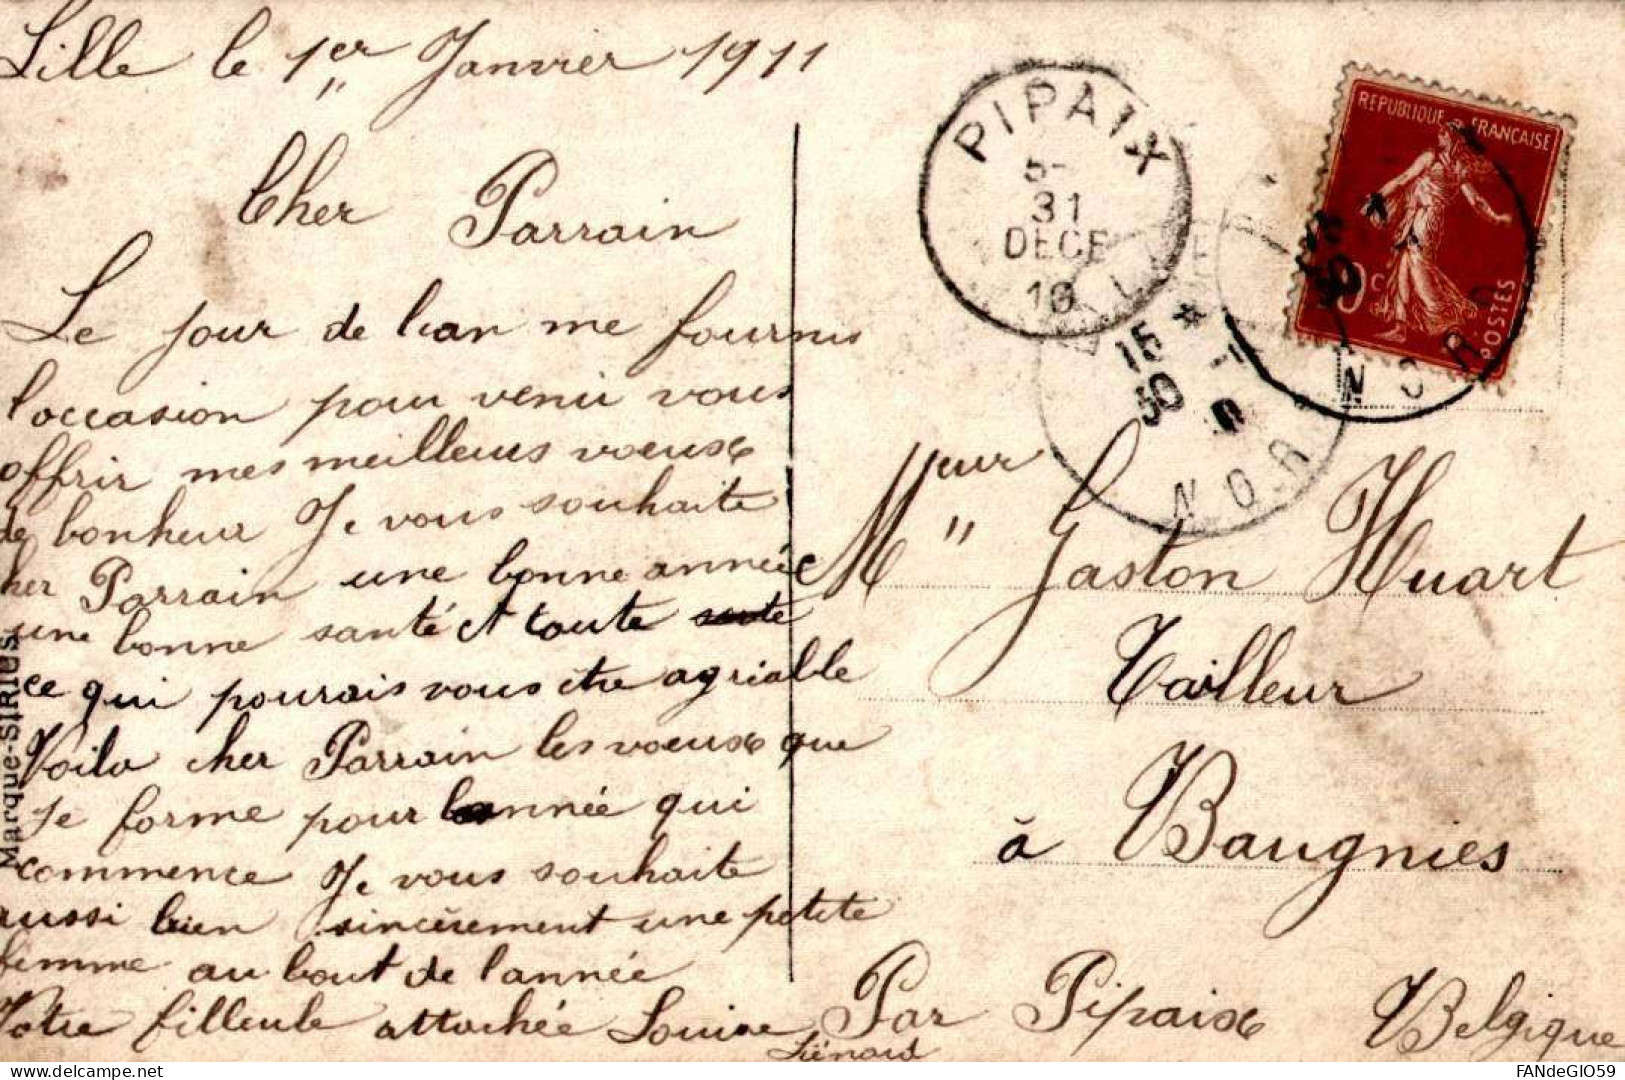 Lille le 1er Janvier 1911
Cher Parrain
Le jour de lan me fournis
l'occasion pour venir vous
offrir mes meilleurs voeuse
de bonheur Je vous souhaite
her Parrain une bonne année
une bonne santé et toute
ce qui pourais vous être agriable
Voila cher Parrain les voeuse que
je forme pour lannée qui
commence Je vous souhaite
aussi bien sincèrement une petite
femme au bout de lannée
Votre filleule attachée Louise
Liénard
Marque-SIRIUS
PIPAIX
5-
31
DECE
10
LILLE
15 *
30
NORD
REPUBLIQUE FRANÇAISE
10c
POSTES
NORD
Meur Gaston Huart
Tailleur
à Baugnies
Par Pipaix Belgique
delcampe.net
FANdeGIO59